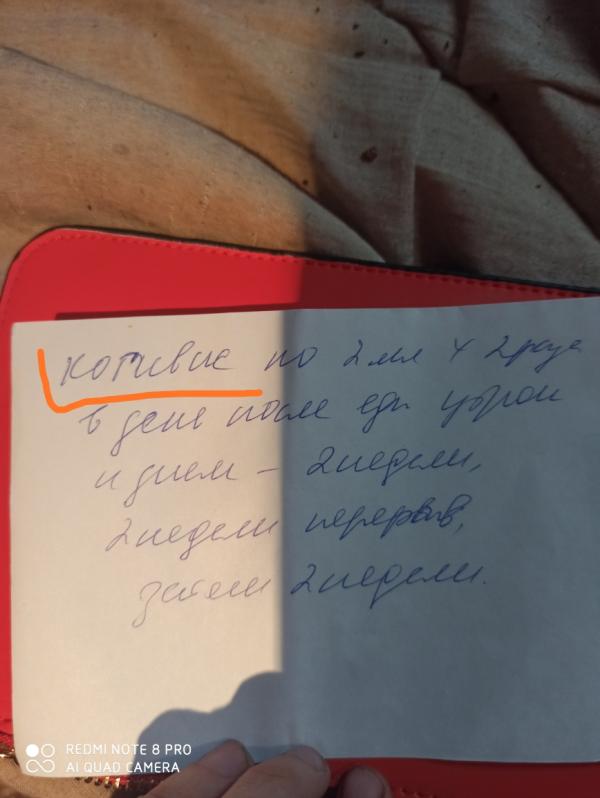 когивис по 2 мл х 2 раза
в день после еды утром
и днем – 2 недели,
2 недели перерыв,
затем 2 недели.
REDMI NOTE 8 PRO
AI QUAD CAMERA